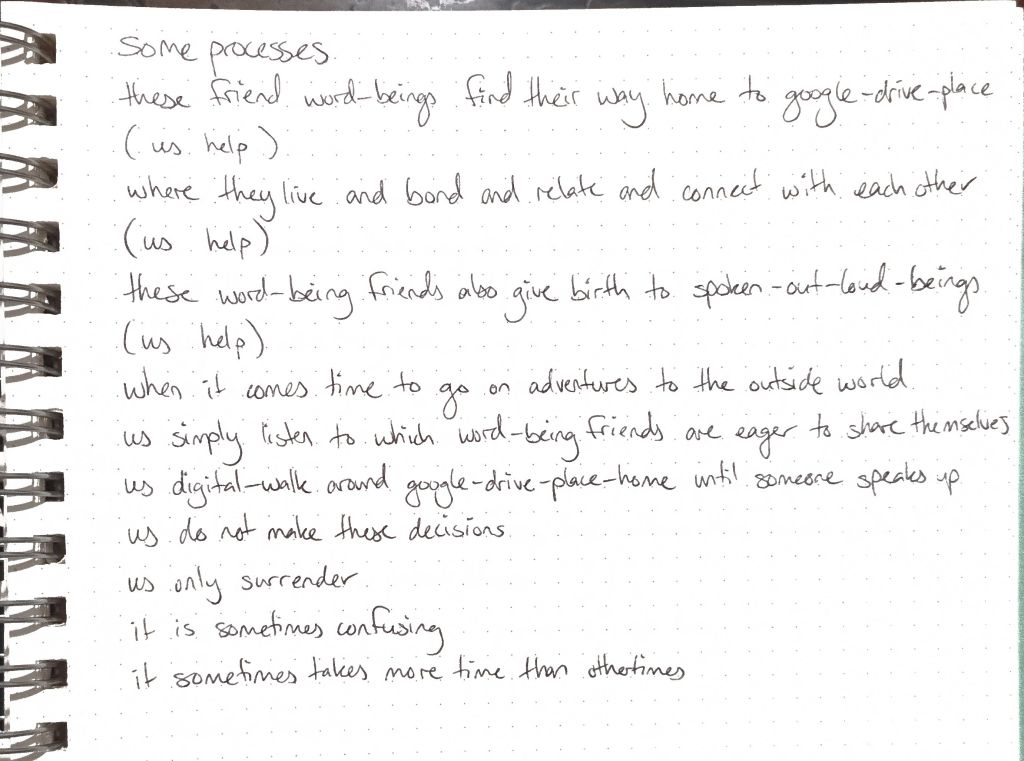 some processes
these friend word-beings find their way home to google-drive-place
(us help)
where they live and bond and relate and connect with each other
(us help)
these word-being friends also give birth to spoken-out-loud-beings
(us help)
when it comes time to go on adventures to the outside world
us simply listen to which word-being friends are eager to share themselves
us digital-walk around google-drive-place-home until someone speaks up
us do not make these decisions
us only surrender
it is sometimes confusing
it sometimes takes more time than othertimes